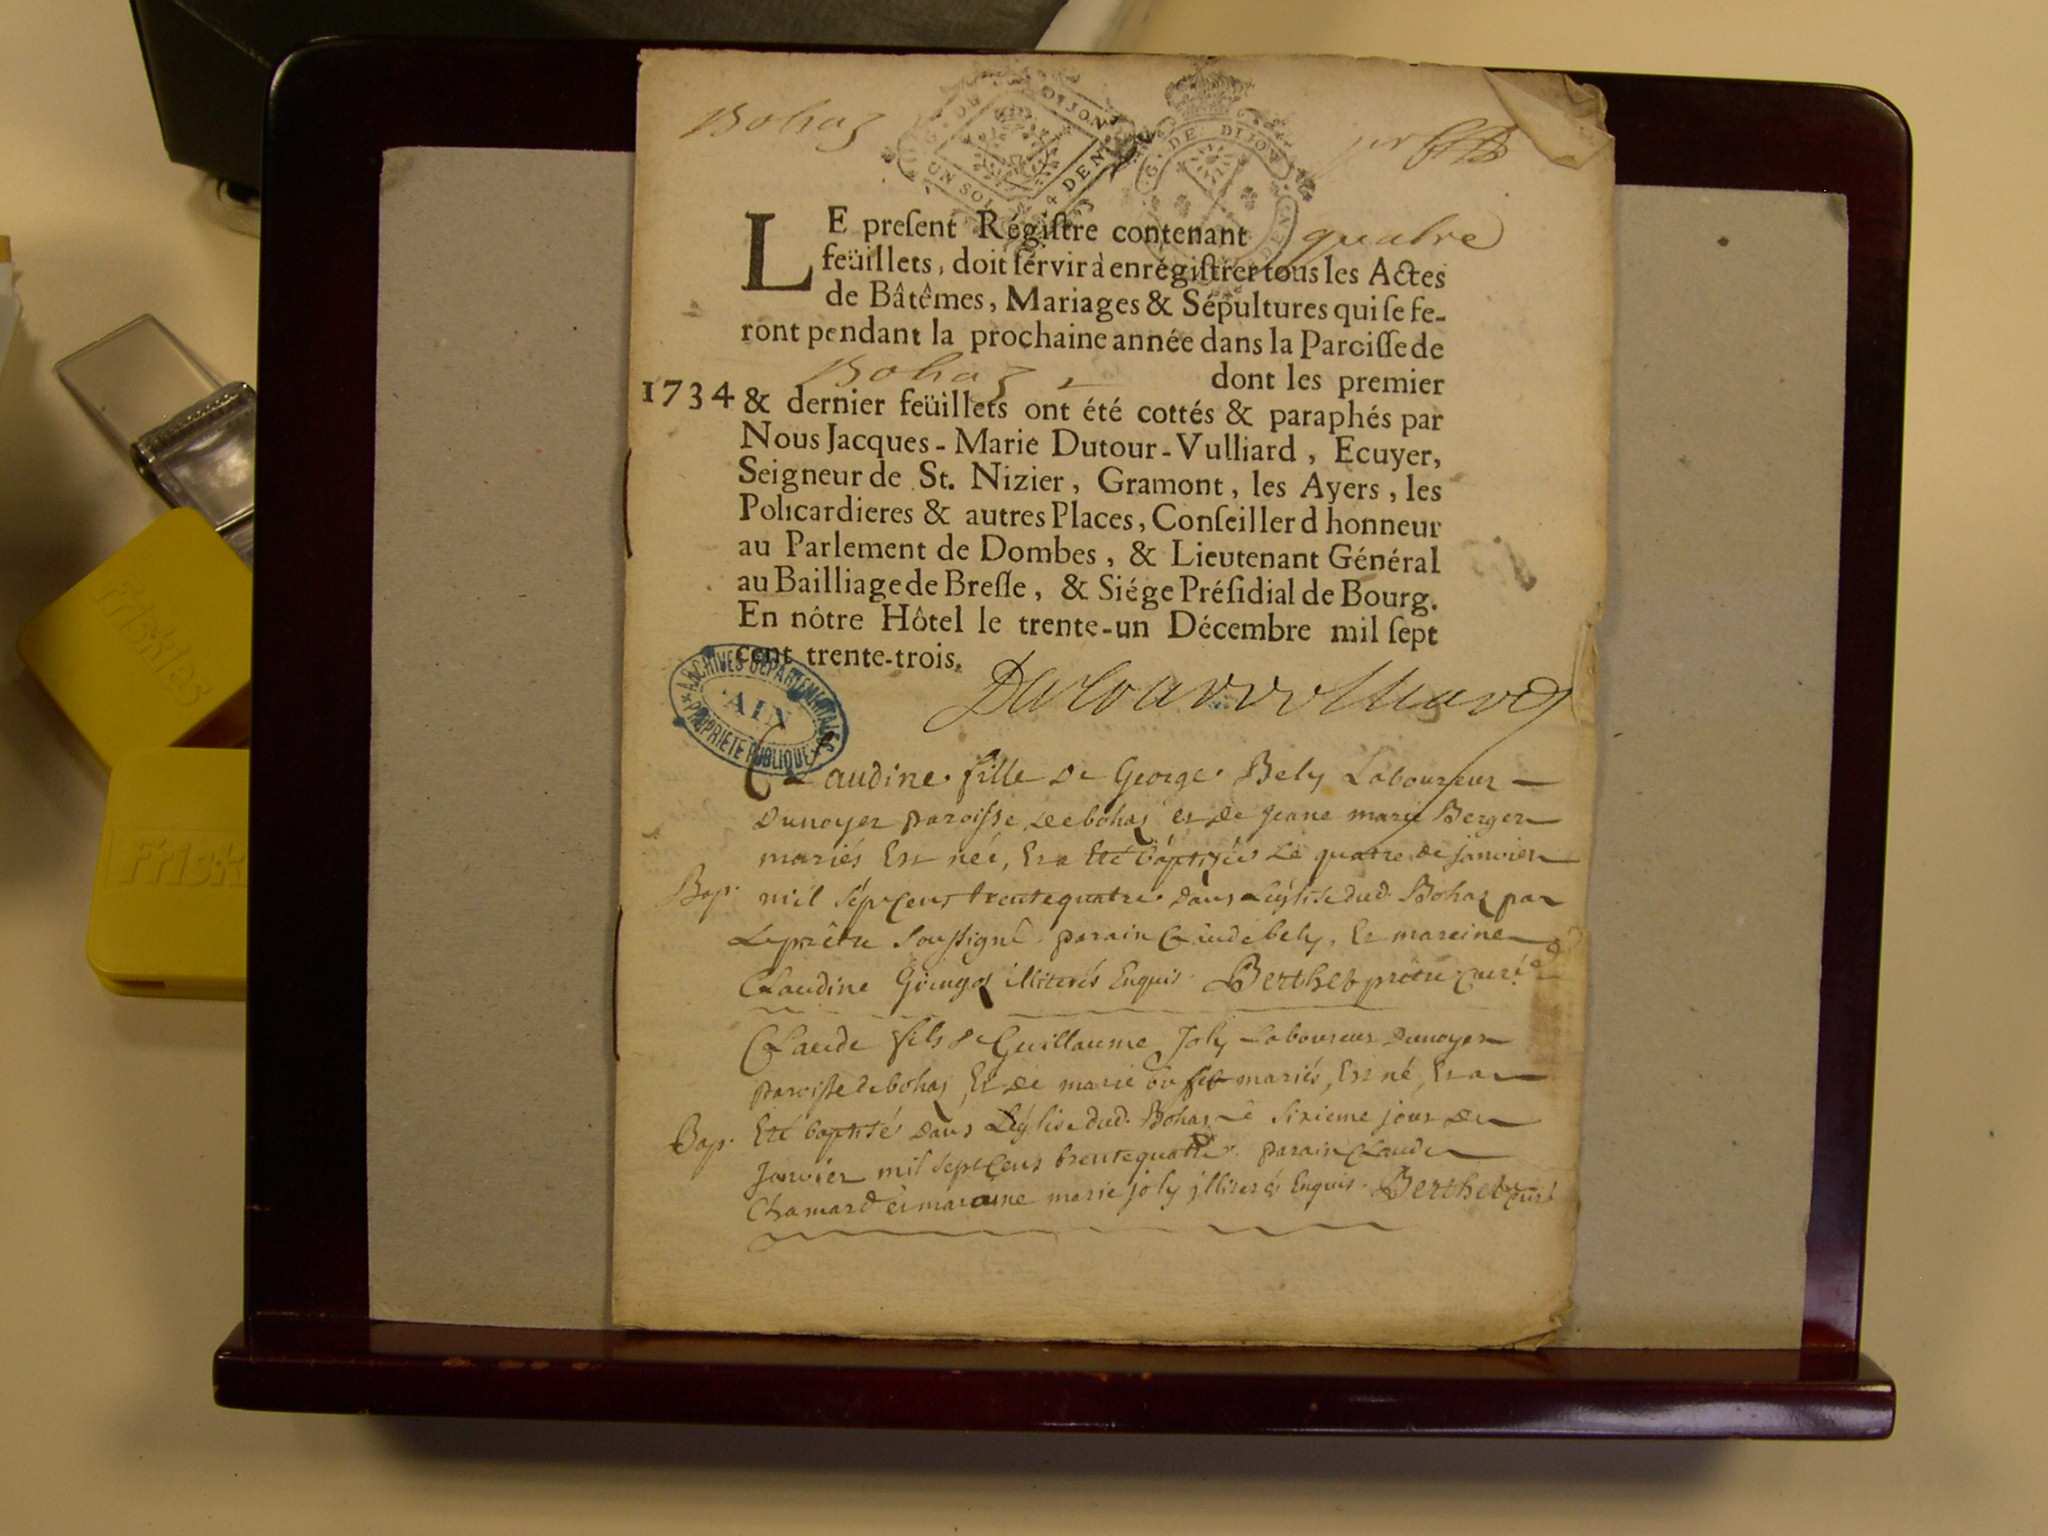 Bohaz
G. DE DIJON
UN SOL 4 DEN
G. DE DIJON
LE preſent Régiſtre contenant quatre
feüillets, doit ſervir à enrégiſtrer tous les Actes
de Bâtêmes, Mariages & Sépultures qui ſe fe-
ront pendant la prochaine année dans la Paroiſſe de
Bohaz dont les premier
1734 & dernier feüillets ont été cottés & paraphés par
Nous Jacques-Marie Dutour-Vulliard, Ecuyer,
Seigneur de St. Nizier, Gramont, les Ayers, les
Policardieres & autres Places, Conſeiller d honneur
au Parlement de Dombes, & Lieutenant Général
au Bailliage de Breſſe, & Siége Préſidial de Bourg.
En nôtre Hôtel le trente-un Décembre mil ſept
cent trente-trois.
ARCHIVES DEPARTEMENTALES
AIN
PROPRIETE PUBLIQUE
Claudine fille de George Bely Laboureur
Dunoyer paroisse de bohaz et de jeane marie Berger
mariés Est née, Et a Eté baptisée Le quatre de janvier
Bap. mil sept cent trentequatre dans Léglise dud. Bohaz par
Le prêtre Soussigné parain Claude bely, Et mareine
Claudine illiterés Enquis. Berthet prêtre Curé
Claude fils de Guillaume Joly Laboureur Dunoyer
paroisse de bohaz Et de marie mariés, Est né, Et a
Bap. Eté baptisé dans Léglise dud. Bohaz le Sixieme jour de
Janvier mil sept cent trentequatre. parain Claude
Chamard et maraine marie joly jlliterés Enquis. Berthet Curé